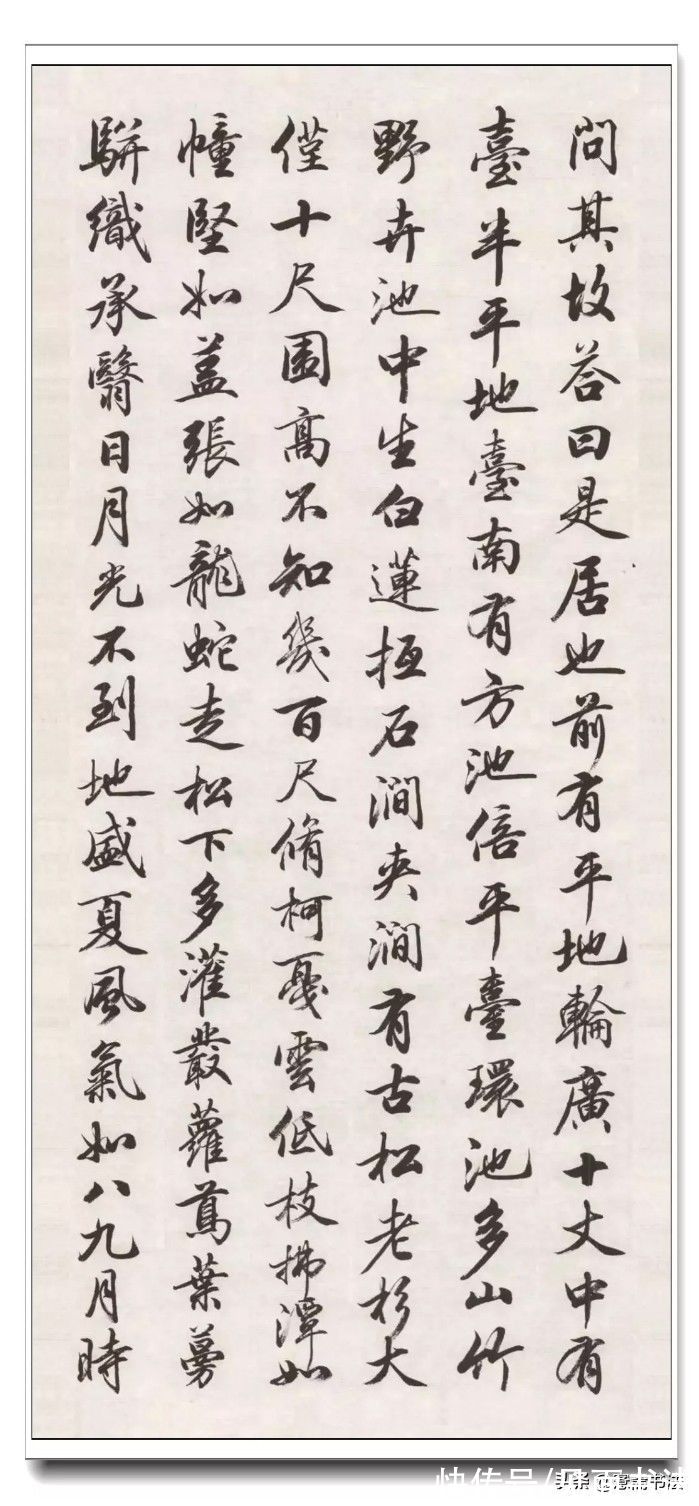 問其故荅曰是居也前有平地輪廣十丈中有
臺半平地臺南有方池倍平臺環池多山竹
野卉池中生白蓮抵石澗夾澗有古松老杉大
僅十尺圍高不知幾百尺脩柯戛雲低枝拂潭如
幢竪如盖張如龍蛇走松下多灌叢蘿蔦葉蔓
駢織承翳日月光不到地盛夏風氣如八九月時
快传号/